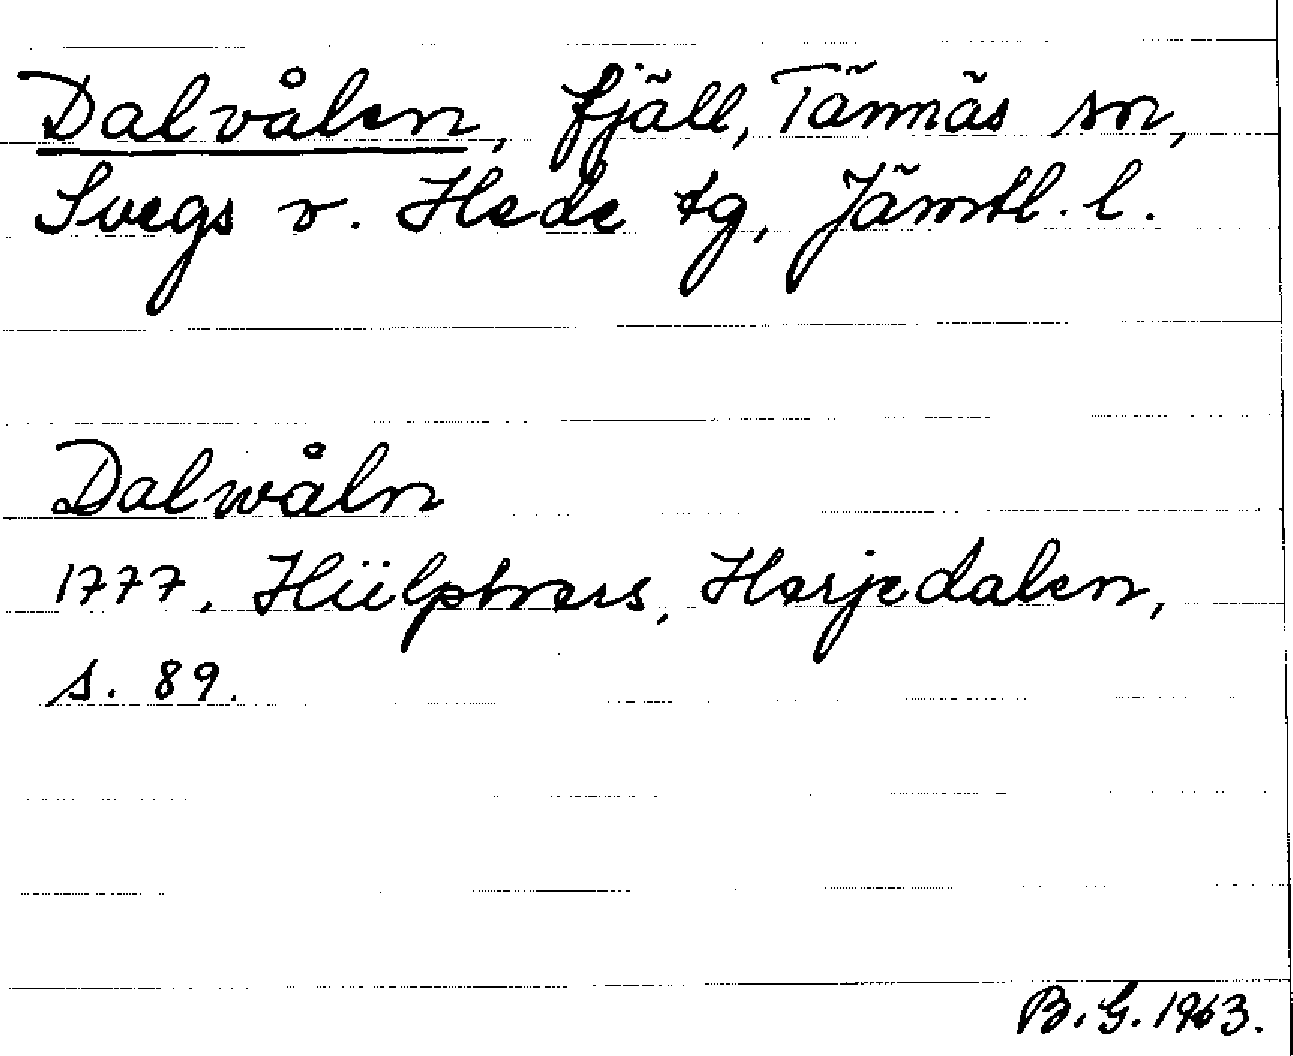 Dalvålen, fjäll, Tännäs sn,
Svegs o. Hede tg, Jämtl. l.
Dalwåln
1777, Hülphers, Herjedalen,
s. 89.
B.G. 1963.